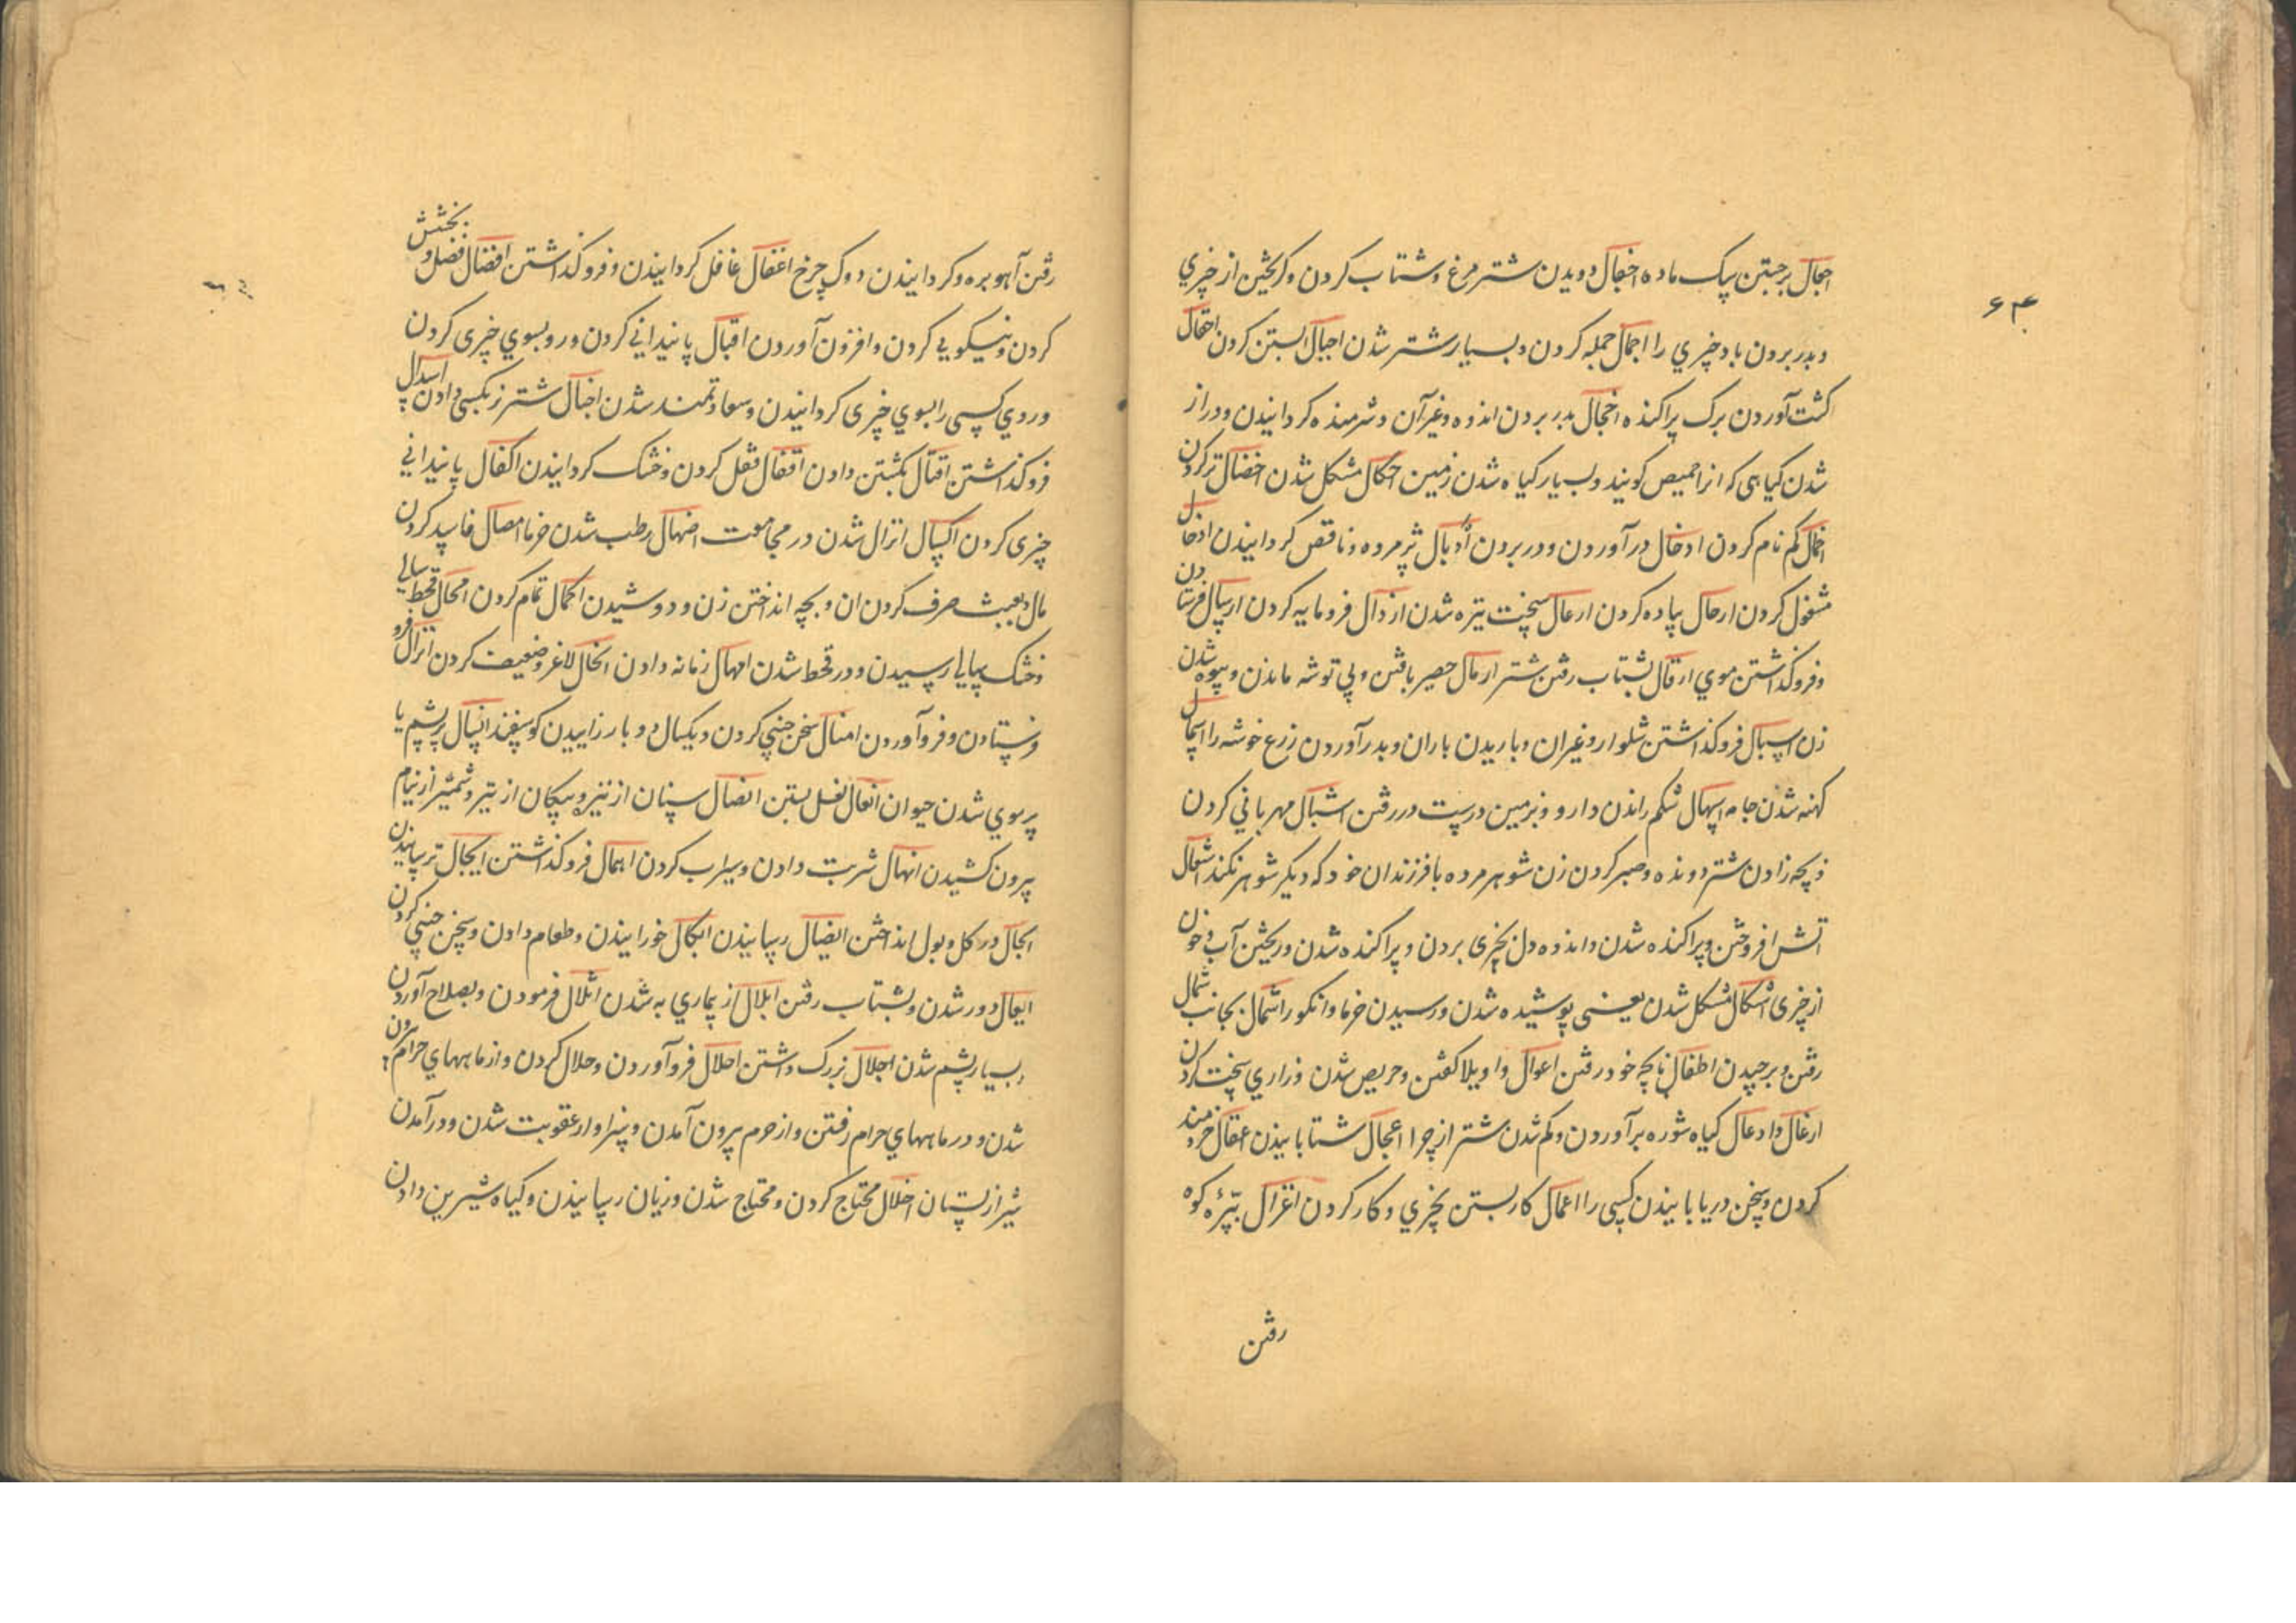 ۶۴
اجعال برجستن سک ماده اجفال دویدن شتر مرغ و شتاب کردن و کریختن از چیزی
و بدر بردن باد چیزی را اجمال جمله کردن و بسیار شتر شدن احبال ابستن کردن احقال
کشت آوردن برک پراکنده اخجال بدر بردن اندوه و غیر آن و شرمنده کردانیدن و دراز
شدن کیاهی که انرا حمیص کویند و بسیار کیاه شدن زمین احکال مشکل شدن اخضال تر کردن
اخمال کم نام کردن ادخال در آوردن و در بردن اذبال پژمرده و ناقص کردانیدن ادخال
مشغول کردن ارحال پیاده کردن ارعال سخت نیزه شدن ارذال فرومایه کردن ارسال فرستادن
و فروکذاشتن موی ارقال بشتاب رفتن شتر ارمال حصیر بافتن و بی توشه ماندن و بیوه شدن
زن اسبال فروکذاشتن شلوار و غیران و باریدن باران و بدر آوردن زرع خوشه را اسمال
کهنه شدن جامه اسهال شکم راندن دارو و بزمین درست در رفتن اشبال مهربانی کردن
و بچه زادن شتر دونده و صبر کردن زن شوهر مرده با فرزندان خود که دیکر شوهر نکند اشعال
اتش افروختن و پراکنده شدن و اندوه دل بچیزی بردن و پراکنده شدن و ریختن آب و خون
از چیزی اشکال مشکل شدن یعنی پوشیده شدن و رسیدن خرما و انکور اشمال بجانب شمال
رفتن و برچیدن اطفال با بچه خود رفتن اعوال واویلا کفتن و حریص شدن و زاری سخت کردن
ارغال و ادغال کیاه شوره برآوردن و کم شدن شتر از چرا اعجال شتابانیدن اعقال خردمند
کردن و سخن دریابانیدن کسی را اعمال کار بستن بچیزی و کار کردن اغزال بتیزه کوه
رفتن
رفتن آهو بره و کردانیدن دوک چرخ اغفال غافل کردانیدن و فروکذاشتن افضال فضل و بخشش
کردن و نیکویی کردن و افزون آوردن اقبال پانیدانی کردن و رو بسوی چیزی کردن
و روی کسی را بسوی چیزی کردانیدن و سعادتمند شدن اخبال شتر زبکسی دادن اسدال
فروکذاشتن اقتال بکشتن دادن اقفال قفل کردن و خشک کردانیدن اکفال پانیدانی
چیزی کردن اکسال انزال شدن در مجامعت اضهال رطب شدن خرما امصال فاسد کردن
مال و بعبث صرف کردن ان و بچه انداختن زن و دوشیدن اکمال تمام کردن امحال قحط سالی
و خشک سالی رسیدن و در قحط شدن امهال زمانه دادن انحال لاغر و ضعیف کردن انزال فرو
فرستادن و فروآوردن امغال سخن چینی کردن و یکسال دو بار زاییدن کوسفند انسال پر پشم یا
پر موی شدن حیوان انعال نعل بستن انصال سنان از نیزه و پیکان از تیر و شمشیر از نیام
بیرون کشیدن انهال شربت دادن و سیراب کردن اهمال فروکذاشتن ایجال ترسانیدن
ایحال در کل و بول انداختن ایصال رسانیدن ایکال خورانیدن و طعام دادن و سخن چینی کردن
ایغال دور شدن و بشتاب رفتن ابلال از بیماری به شدن اثلال فرمودن و بصلاح آوردن
بسیار پشم شدن اجلال بزرک داشتن احلال فروآوردن و حلال کردن و از ماههای حرام بیرون
شدن و در ماههای حرام رفتن و از حرم بیرون آمدن و سزاوار عقوبت شدن و در آمدن
شیر از پستان اخلال محتاج کردن و محتاج شدن و زیان رسانیدن و کیاه شیرین دادن